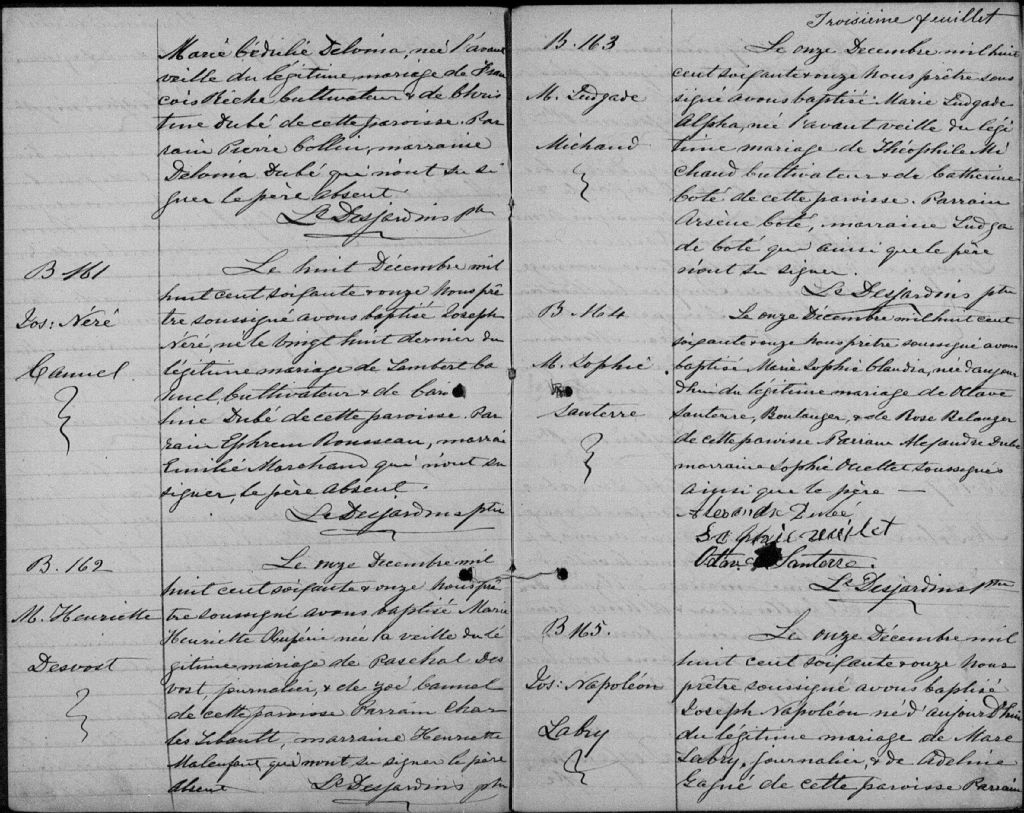 Marie Cédulié Delvina, née l'avant
veille du légitime mariage de Fran
çois Riche Cultivateur & de Chris
tine Dubé de cette paroisse. Par
rain Pierre Collin, marraine
Delvina Dubé qui n'ont su si
gner le père absent.
Ls Desjardins ptre
B. 161
Jos: Néré
Canuel
Le huit Décembre mil
huit cent soixante & onze Nous prê
tre soussigné avons baptisé Joseph
Néré, né le vingt huit dernier du
légitime mariage de Lambert Ca
nuel, Cultivateur & de
hine Dubé de cette paroisse. Par
rain Ephrem Rousseau, marrai
Emilie Marchand qui n'ont su
signer, le père absent.
Ls Desjardins ptre
B. 162
M. Henriette
Desvost
Le onze Décembre mil
huit cent soixante & onze Nous prê
tre soussigné avons baptisé Marie
Henriette née la veille du lé
gitime mariage de Paschal Des
vost, journalier, & de Zoé Canuel
de cette paroisse Parrain Char
les Thibault, marraine Henriette
Malenfant qui n'ont su signer le père
absent Ls Desjardins ptre
Troisième feuillet
B. 163
M. Ludgade
Michaud
Le onze Décembre mil huit
cent soixante & onze Nous prêtre sous
signé avons baptisé Marie Ludgade
Alpha, née l'avant veille du légi
time mariage de Théophile Mi
chaud Cultivateur & de Catherine
Coté de cette paroisse. Parrain
Arsène Coté, marraine Ludga
de Coté qui ainsi que le père
n'ont su signer.
Ls Desjardins ptre
B. 164
M. Sophie
Santerre
Le onze Décembre mil huit cent
soixante & onze Nous prêtre soussigné avons
baptisé Marie Sophie Claudia, née d'aujour
d'hui du légitime mariage de Octave
Santerre, Boulanger, & de Rose Belanger
de cette paroisse Parrain Alexandre Dubé
marraine Sophie Ouellet soussignés
ainsi que le père —
Alexandre Dube
Sophie ouellet
Octave Santerre.
Ls Desjardins ptre
B 165.
Jos: Napoléon
Labry
Le onze Décembre mil
huit cent soixante & onze Nous
prêtre soussigné avons baptisé
Joseph Napoléon né d'aujourd'hui
du légitime mariage de Marc
Labry, journalier, & de Adeline
Gagné de cette paroisse Parrain